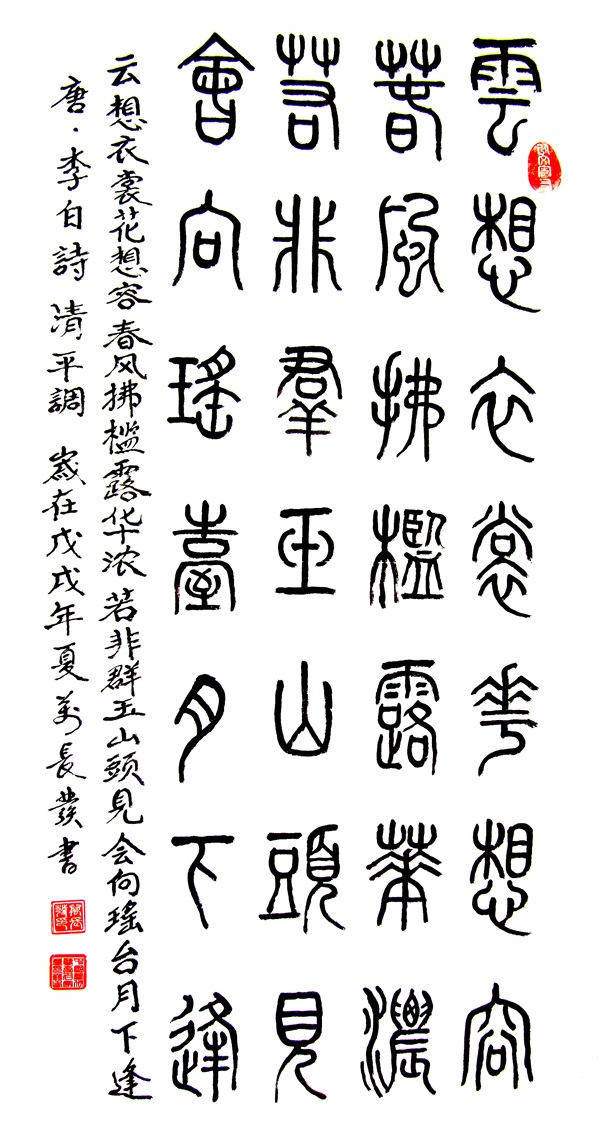 雲想衣裳花想容
春風拂檻露華濃
若非羣玉山頭見
會向瑤臺月下逢
云想衣裳花想容春风拂槛露华浓若非群玉山頭見会向瑶台月下逢
唐·李白詩清平調歲在戊戌年夏萬長發書